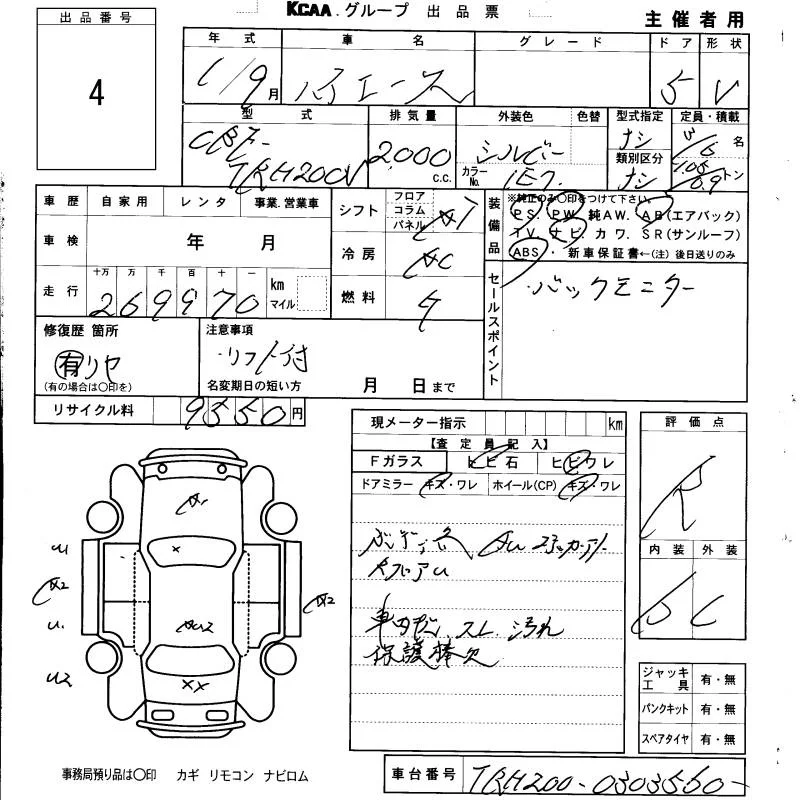 KCAA グループ 出品票
主催者用
出品番号
4
年式 車名 グレード ドア 形状
19月 ハイエース 5 V
型式 排気量 外装色 色替 型式指定 定員・積載
CBF-TRH200V 2,000 c.c. シルバー カラーNo. 1E7 ナシ 類別区分 ナシ 3/6 名 1.05/0.9 トン
車歴 自家用 レンタ 事業.営業車 シフト フロア コラム パネル AT
装備品 ※純正のみ〇印をつけて下さい.
PS. PW. 純AW. AB(エアバック)
TV. ナビ. カワ. SR(サンルーフ)
ABS・ 新車保証書←(注)後日送りのみ
車検 年 月 冷房 AC
走行 十万 万 千 百 十 一
269970 km マイル 燃料 ガ
セールスポイント
バックモニター
修復歴 箇所 注意事項
有 リヤ リフト付
(有の場合は〇印を) 名変期日の短い方 月 日まで
リサイクル料 9350円
現メーター指示 km
【査定員記入】
Fガラス トビ石 ヒビワレ
ドアミラー キズ・ワレ ホイール(CP) キズ・ワレ
AU ステッカーアト
車内 スレ 汚れ
保護棒欠
評価点
R
内装 外装
D C
A1
U1
A2
U1
U2
×
AU2
A2
××
ジャッキ工具 有・無
パンクキット 有・無
スペアタイヤ 有・無
事務局預り品は〇印 カギ リモコン ナビロム
車台番号 TRH200-0303550-